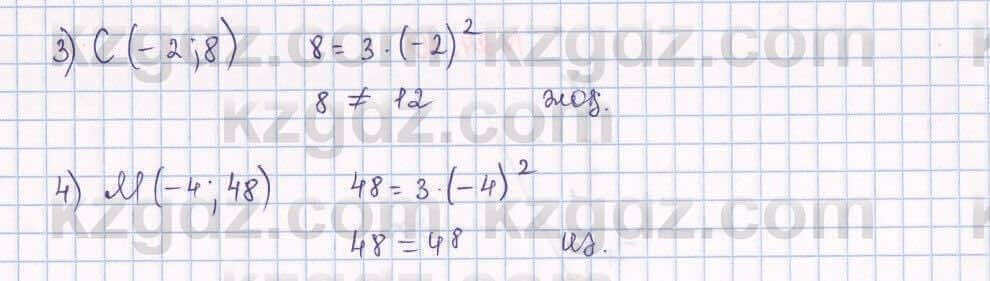 3) C (-2; 8) 8 = 3 · (-2)²
8 ≠ 12 жоқ.
4) M (-4; 48) 48 = 3 · (-4)²
48 = 48 иә.
kzgdz.com kzgdz.com
kzgdz.com
kzgdz.com kzgdz.com